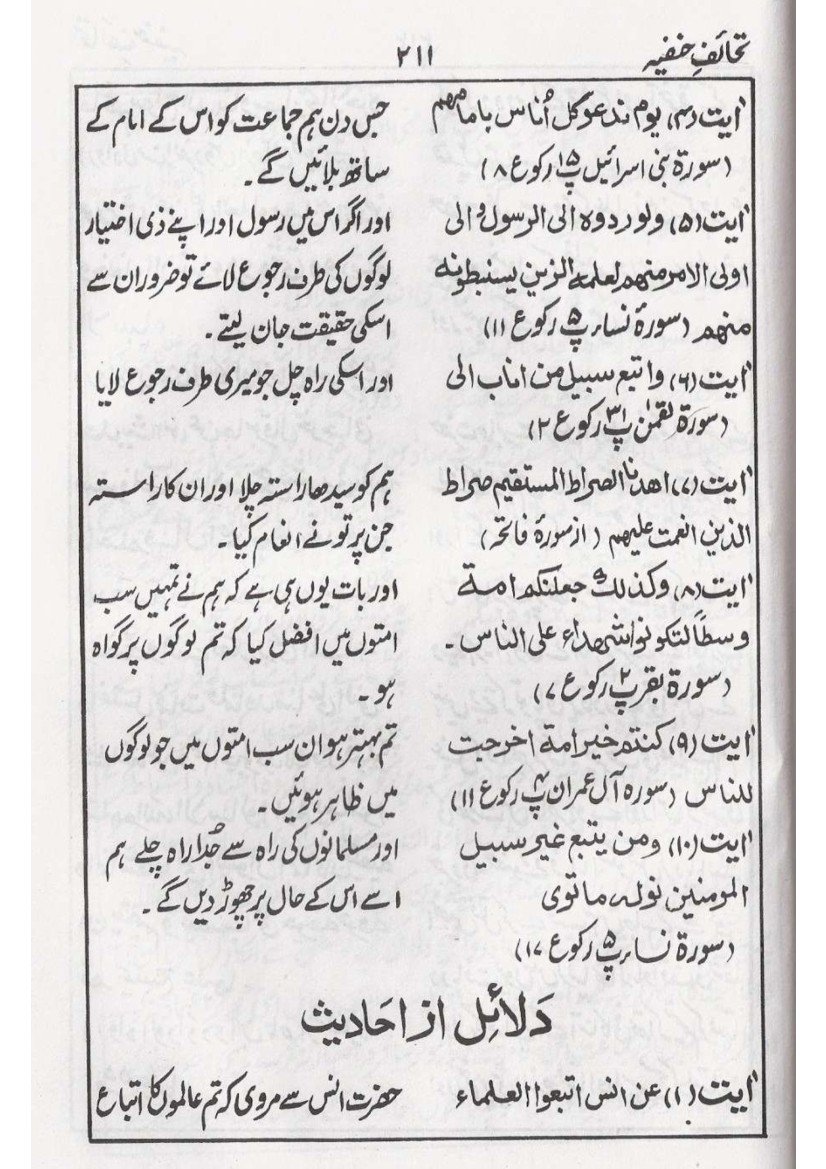 تحائفِ حنفیہ ۲۱۱
اٰیت (۴) یوم ندعو کل اُناس بامامہم جس دن ہم جماعت کو اس کے امام کے
(سورۃ بنی اسرائیل پ۱۵ رکوع ۸) ساتھ بلائیں گے۔
اٰیت (۵) ولو ردوہ الی الرسول والی اور اگر اس میں رسول اور اپنے ذی اختیار
اولی الامر منھم لعلمہ الزین یسنبطونہ لوگوں کی طرف رجوع لائے تو ضرور ان سے
منھم (سورۂ نساء پ۵ رکوع ۱۱) اسکی حقیقت جان لیتے۔
اٰیت (۶) واتبع سبیل من اناب الی اور اسکی راہ چل جو میری طرف رجوع لایا
(سورۃ لقمٰن پ۳۱ رکوع ۲)
اٰیت (۷) اھدنا الصراط المستقیم صراط ہم کو سیدھا راستہ چلا اور ان کا راستہ
الذین انعمت علیھم (از سورۂ فاتحہ) جن پر تو نے انعام کیا۔
اٰیت (۸) وکذلک جعلنکم امة اور بات یوں ہی ہے کہ ہم نے تمہیں سب
وسطاً لتکونوا شھداء علی الناس۔ امتوں میں افضل کیا کہ تم لوگوں پر گواہ
(سورۃ بقر پ۲ رکوع ۷) ہو۔
اٰیت (۹) کنتم خیر امة اخرجت تم بہتر ہو ان سب امتوں میں جو لوگوں
للناس (سورہ آل عمران پ۴ رکوع ۱۱) میں ظاہر ہوئیں۔
اٰیت (۱۰) ومن یتبع غیر سبیل اور مسلمانوں کی راہ سے جُدا راہ چلے ہم
المومنین نولہ ماتوی اسے اس کے حال پر چھوڑ دیں گے۔
(سورۃ نساء پ۵ رکوع ۱۷)
دَلائل از احَادیث
اٰیت (۱) عن انس اتبعوا العلماء حضرت انس سے مروی کہ تم عالموں کا اتباع